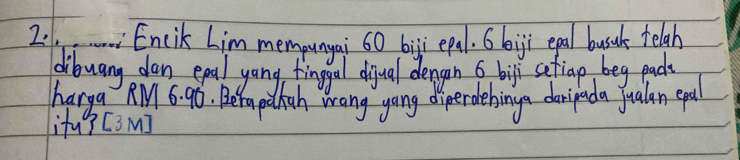 2. Encik Lim mempunyai 60 biji epal. 6 biji epal busuk telah
dibuang dan epal yang tinggal dijual dengan 6 biji setiap beg pada
harga RM 6.90. Berapakah wang yang diperolehinya daripada jualan epal
itu? [3 M]